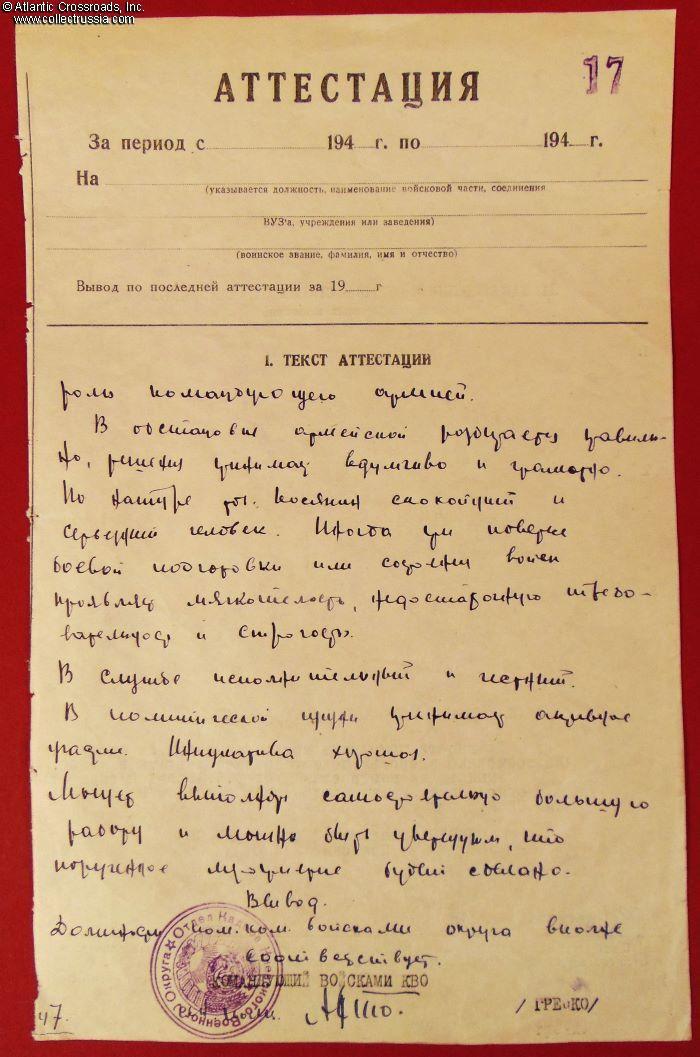 © Atlantic Crossroads, Inc.
www.collectrussia.com
17
АТТЕСТАЦИЯ
За период с 194 г. по 194 г.
На
(указывается должность, наименование войсковой части, соединения
ВУЗ'а, учреждения или заведения)
(воинское звание, фамилия, имя и отчество)
Вывод по последней аттестации за 19 г
I. ТЕКСТ АТТЕСТАЦИИ
роль командующего армией.
В обстановке армейской разбирается правиль-
но, решения принимает вдумчиво и грамотно.
По натуре тов. спокойный и
серьезный человек. Иногда при поверке
боевой подготовки или войск
проявляет мягкотелость, недостаточную требо-
вательность и строгость.
В службе исполнительный и честный.
В политической жизни принимает активное
участие. Инициатива хорошая.
Может выполнять самостоятельно большую
работу и можно быть уверенным, что
порученное мероприятие будет сделано.
Вывод.
Должности пом. ком. войсками округа вполне
соответствует.
КОМАНДУЮЩИЙ ВОЙСКАМИ КВО
/ГРЕЧКО/
Отдел Кадров Киевского Военного Округа
47.